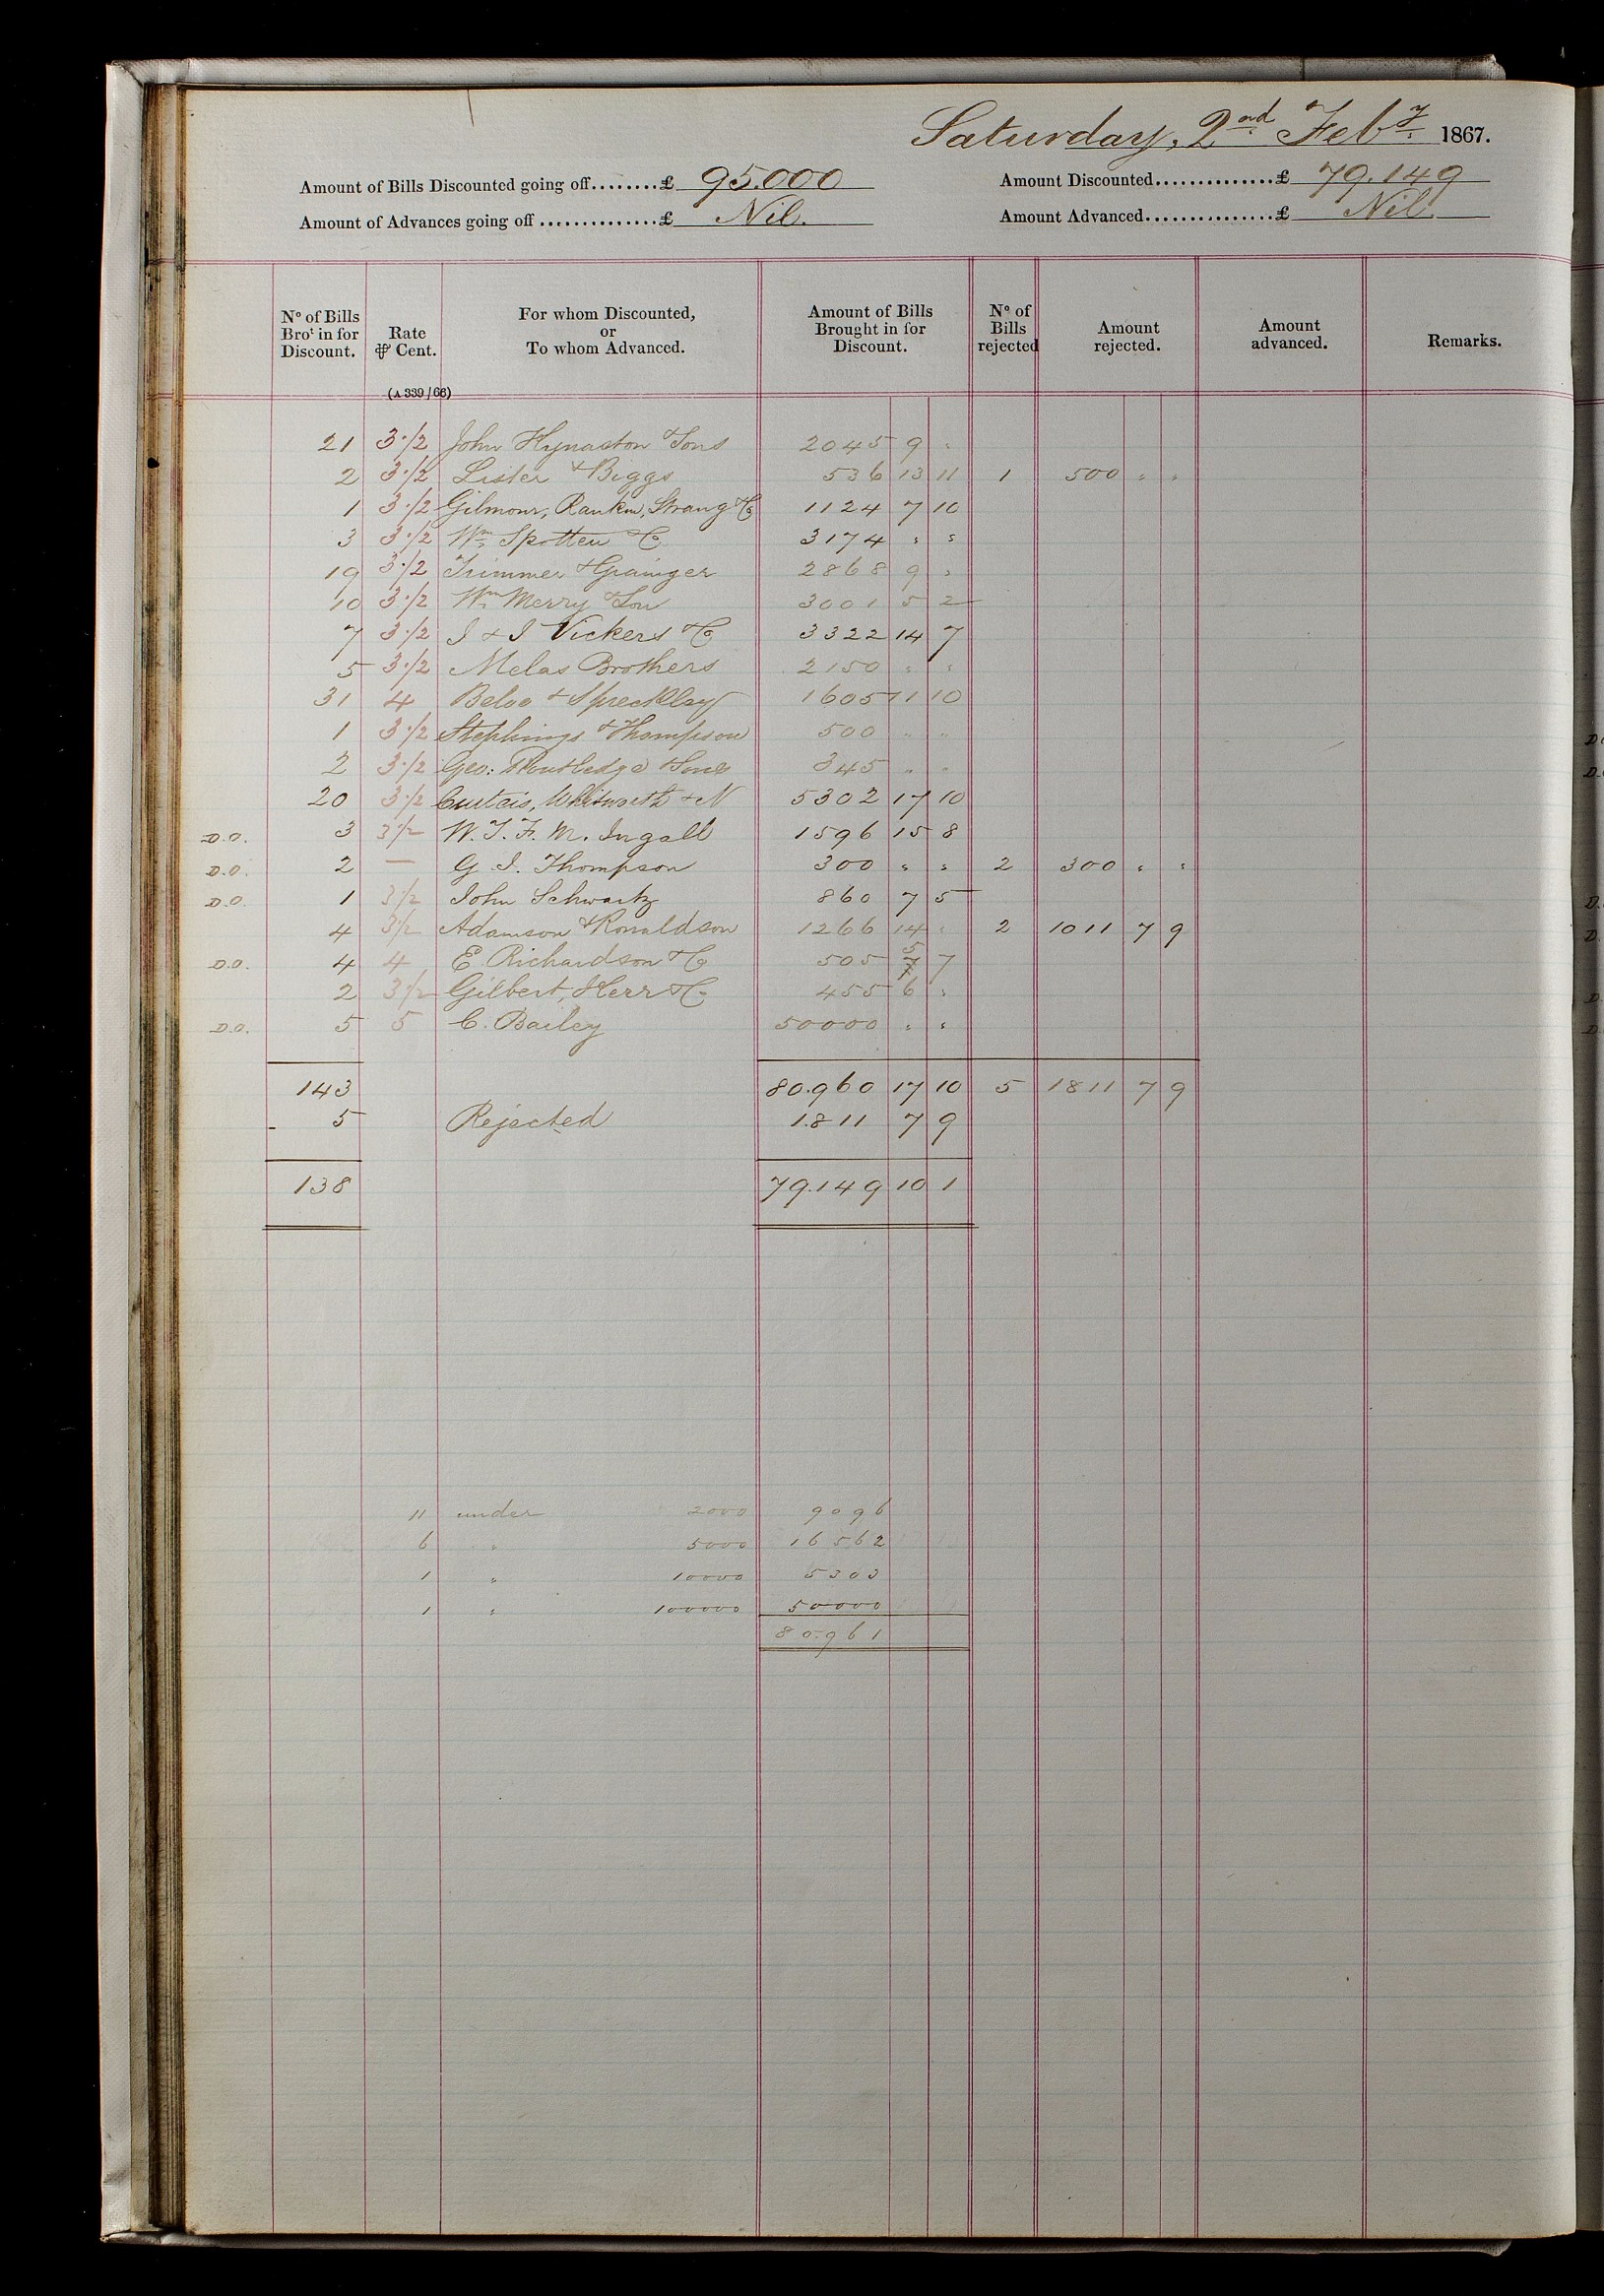 Saturday, 2nd Feby 1867.
Amount of Bills Discounted going off........£ 95.000 Amount Discounted...............£ 79.149
Amount of Advances going off ...............£ Nil. Amount Advanced................£ Nil.
No of Bills Brot in for Discount. Rate ⅌ Cent. For whom Discounted, or To whom Advanced. Amount of Bills Brought in for Discount. No of Bills rejected Amount rejected. Amount advanced. Remarks.
(A 339/66)
21 3·/2 John Hynaston & Sons 2045 9 "
2 3·/2 Lister & Biggs 536 13 11 1 500 " "
1 3·/2 Gilmour, Rankin, Strang & Co 1124 7 10
3 3·/2 Wm Spotten & Co 3174 " "
19 3·/2 Trimmer & Grainger 2868 9 "
10 3·/2 Wm Merry & Son 3001 5 2
7 3·/2 J & J Vickers & Co 3322 14 7
5 3·/2 Melas Brothers 2150 " "
31 4 & Spreckley 1605 11 10
1 3·/2 & Thompson 500 " "
2 3·/2 Geo: Routledge & Sons 345 " "
20 3·/2 Curteis, Whitworth & N 5302 17 10
D.O. 3 3·/2 W. T. F. M. Ingall 1596 15 8
D.O. 2 — G. I. Thompson 300 " " 2 300 " "
D.O. 1 3/2 John Schwartz 860 7 5
4 3/2 Adamson & Ronaldson 1266 14 " 2 1011 7 9
D.O. 4 4 E Richardson & Co 505 5 7
2 3·/2 Gilbert, Kerr & Co 455 6 "
D.O. 5 5 C. Bailey 50000 " "
143 80.960 17 10 5 1811 7 9
- 5 Rejected 1.811 7 9
138 79.149 10 1
11 under 2000 9096
6 " 5000 16562
1 " 10000 5303
1 " 100000 50000
80.961